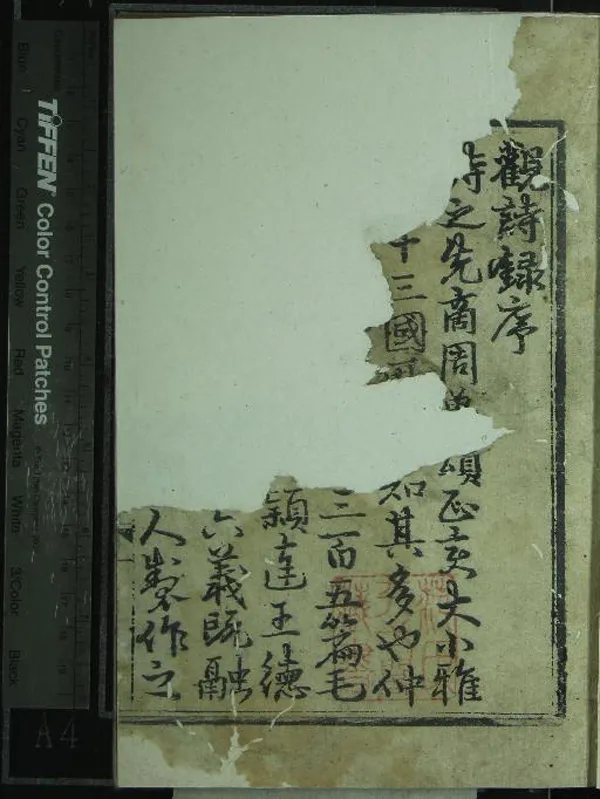 觀詩録序
詩之先商周 頌正變大小雅
十三國 知其多也仲
三百五篇毛
穎達王德
六義既融
人製作之
TIFFEN Color Control Patches
Blue Cyan Green Yellow Red Magenta White 3/Color Black
A4